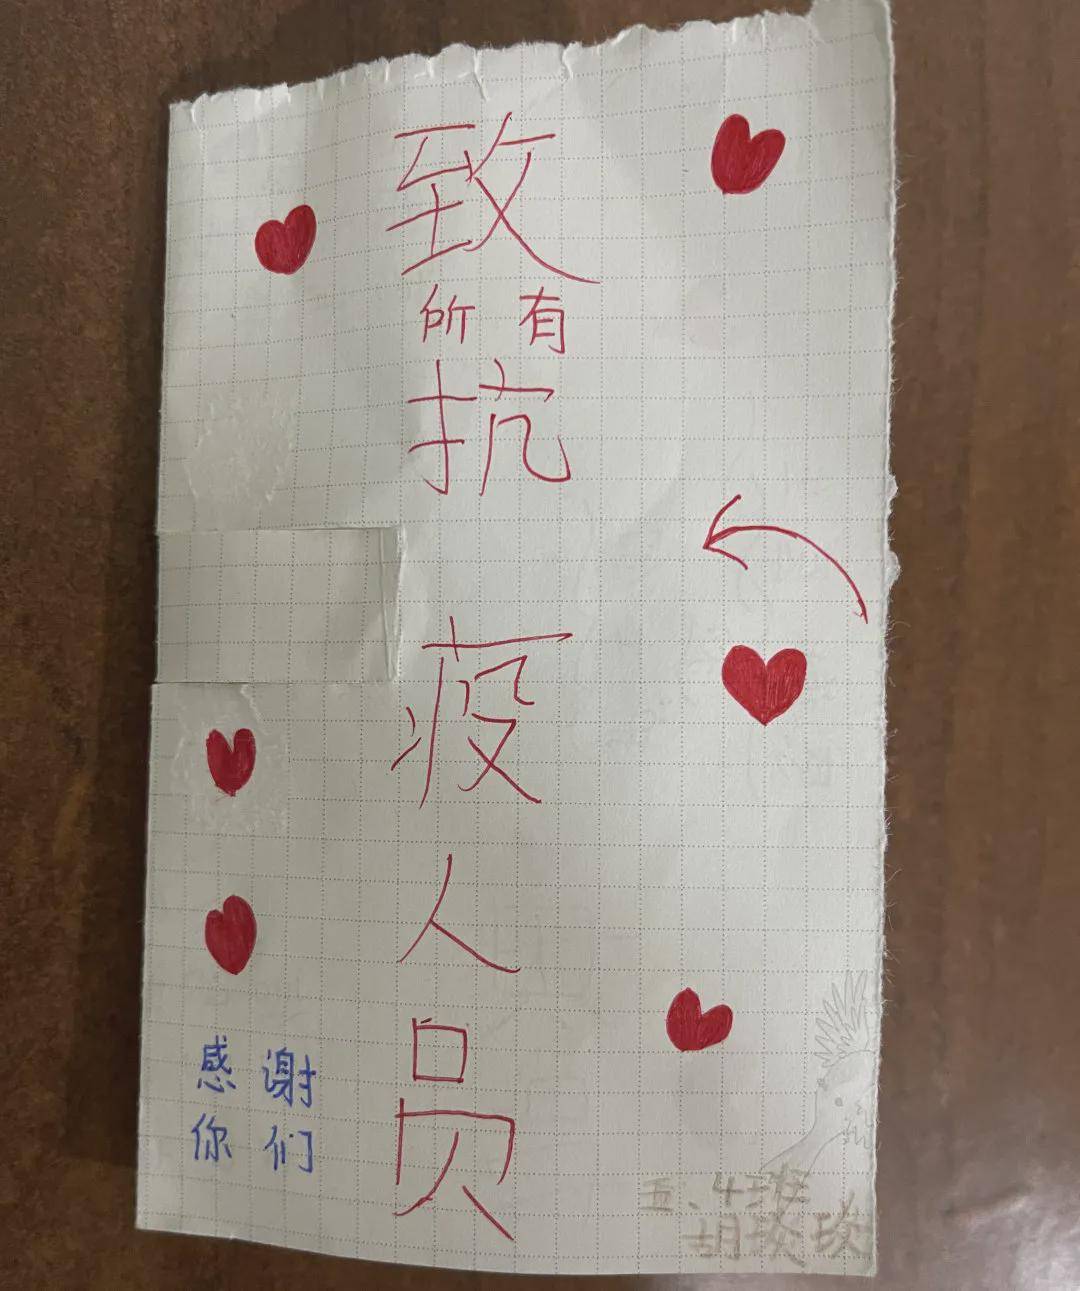 致
所有
抗
疫
人
员
感谢
你们
五、4班